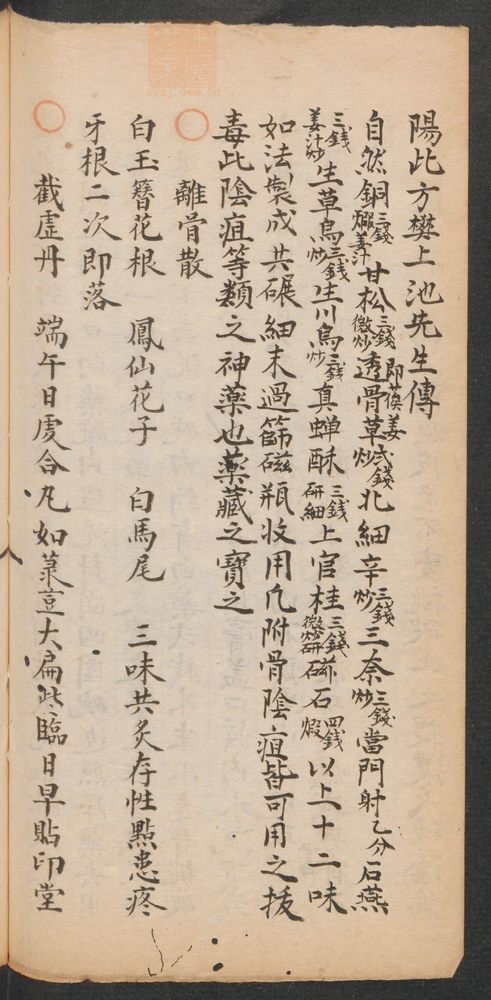 陽此方樊上池先生傳
自然銅三錢煅姜汁甘松三錢微炒透骨草即萎姜弍錢炒北細辛三錢炒三柰三錢炒當門射乙分石燕
三錢姜汁炒生草烏三錢炒生川烏三錢炒真蟬酥三錢研細上官桂三錢微炒研磁石四錢煅以上十二味
如法製成共碾細末過篩磁瓶收用凡附骨陰疽皆可用之拔
毒此陰疽等類之神藥也藥藏之寶之
離骨散
白玉簪花根 鳳仙花子 白馬尾 三味共炙存性點患疼
牙根二次即落
截虛丹 端午日虔合丸如菉荳大扁些臨日早貼印堂